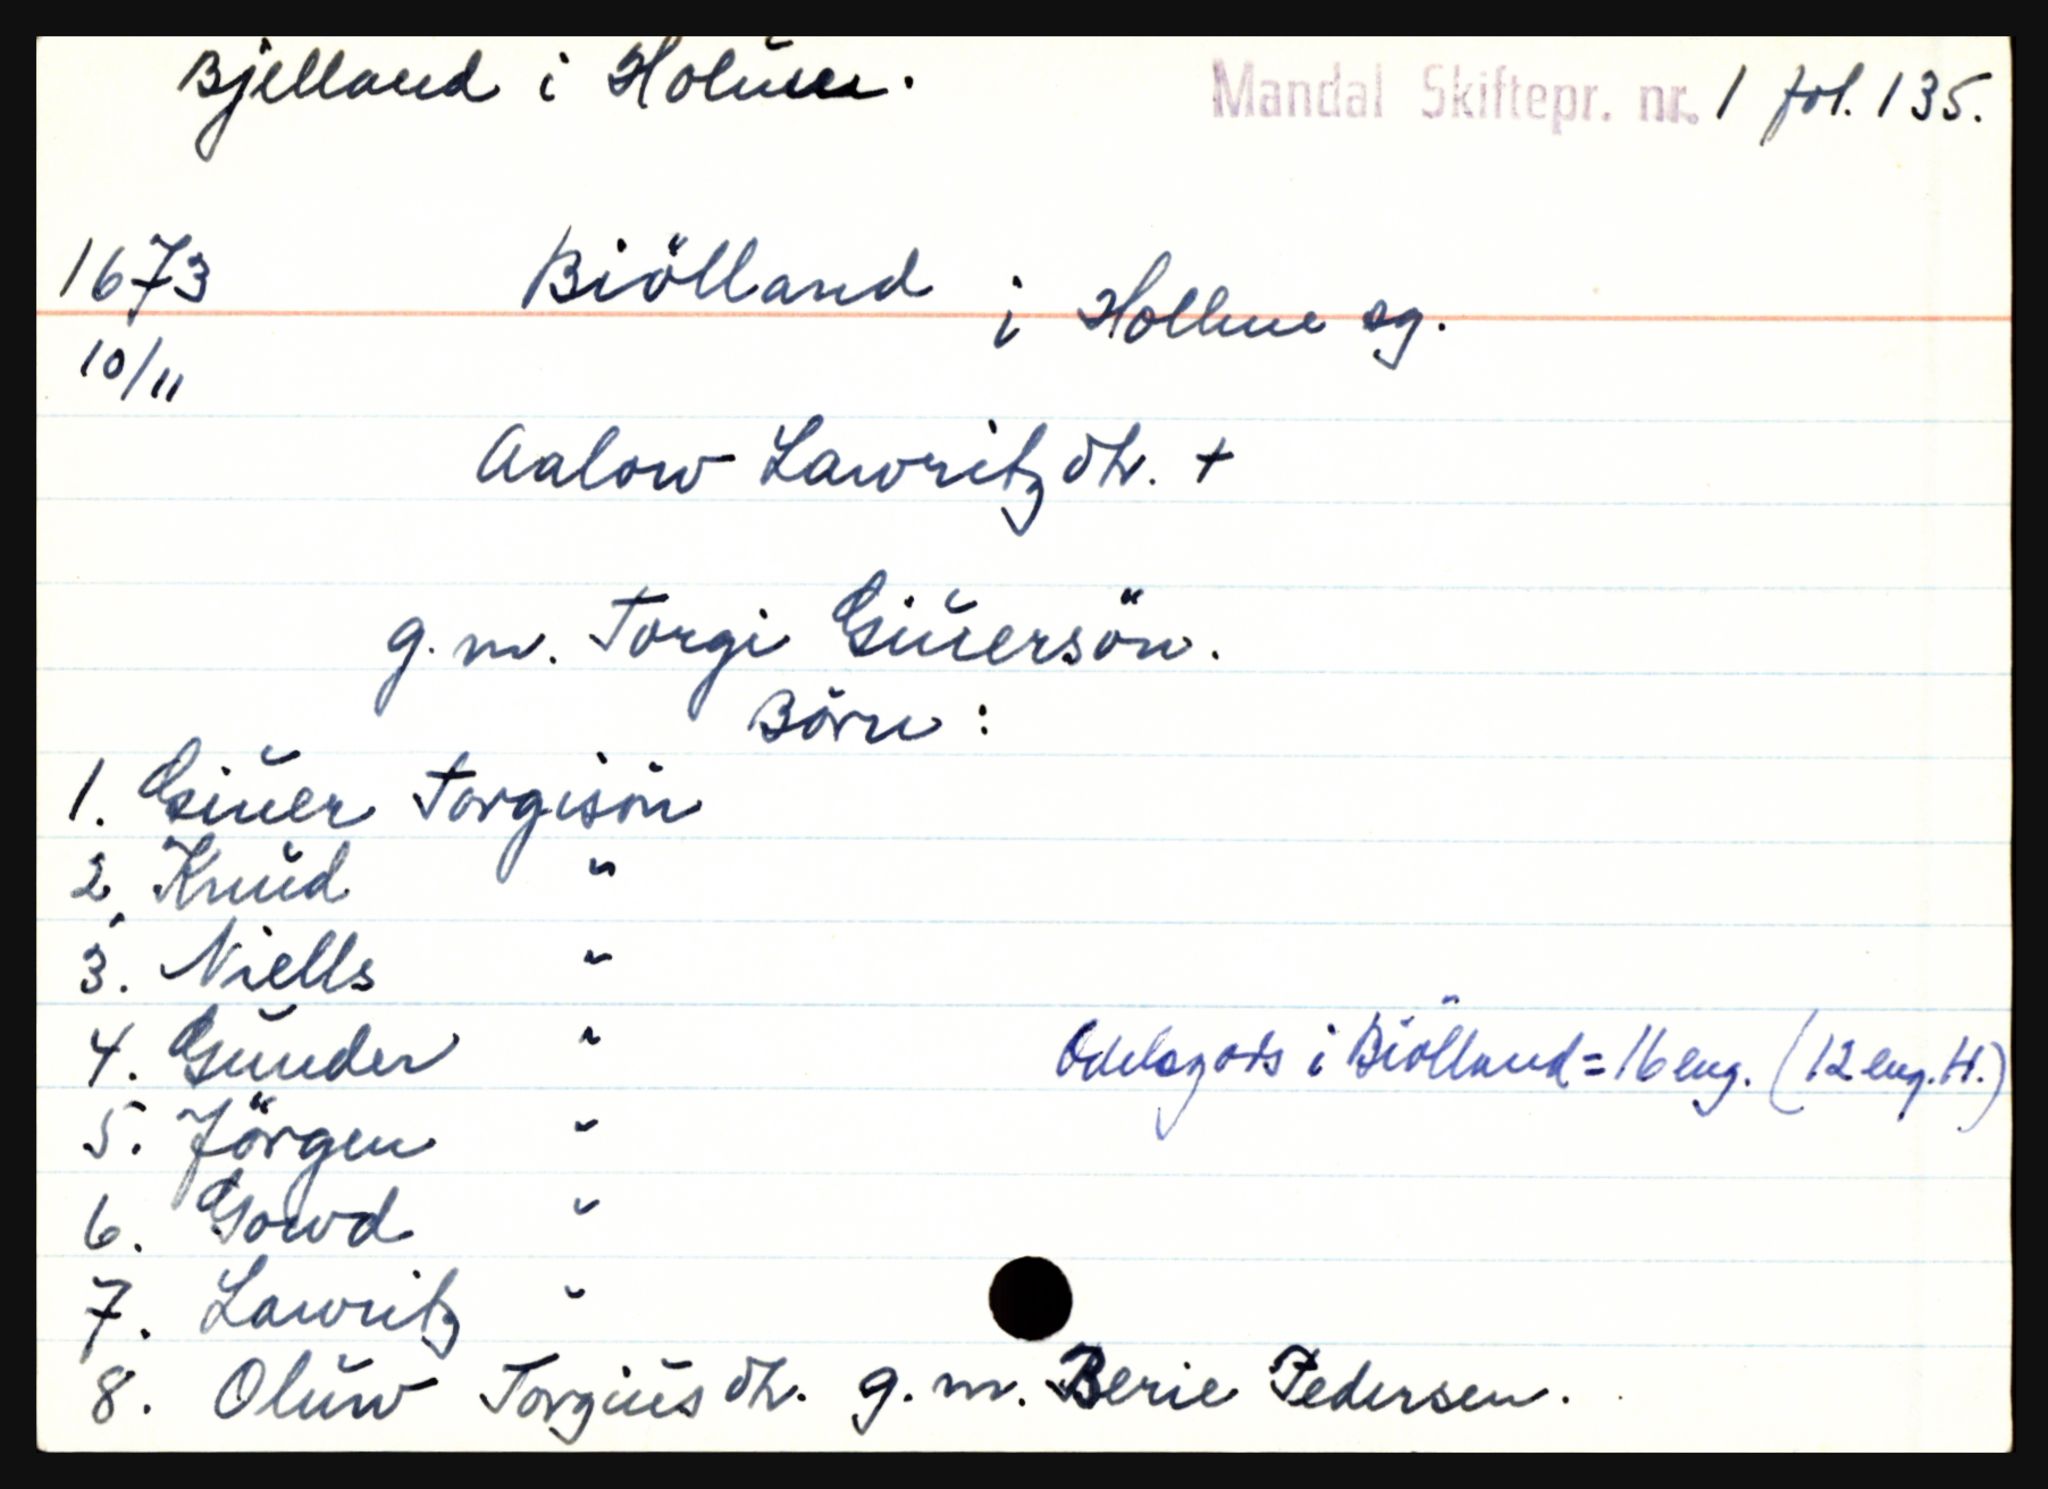 Bjelland i Holum. Mandal Skiftepr. nr. 1 fol. 135.
1673 Biölland i Hollme sg.
10/11
Aalow Lawritzdtr. +
g. m. Torgi Giuersön.
Börn :
1. Giuer Torgisön
2. Knud "
3. Niells "
4. Gunder " Odelsgods i Biölland = 16 eng. (12 eng. H.)
5. Jörgen "
6. Gowd "
7. Lawritz "
8. Oluw Torgiusdtr. g. m. Berie Pedersen.